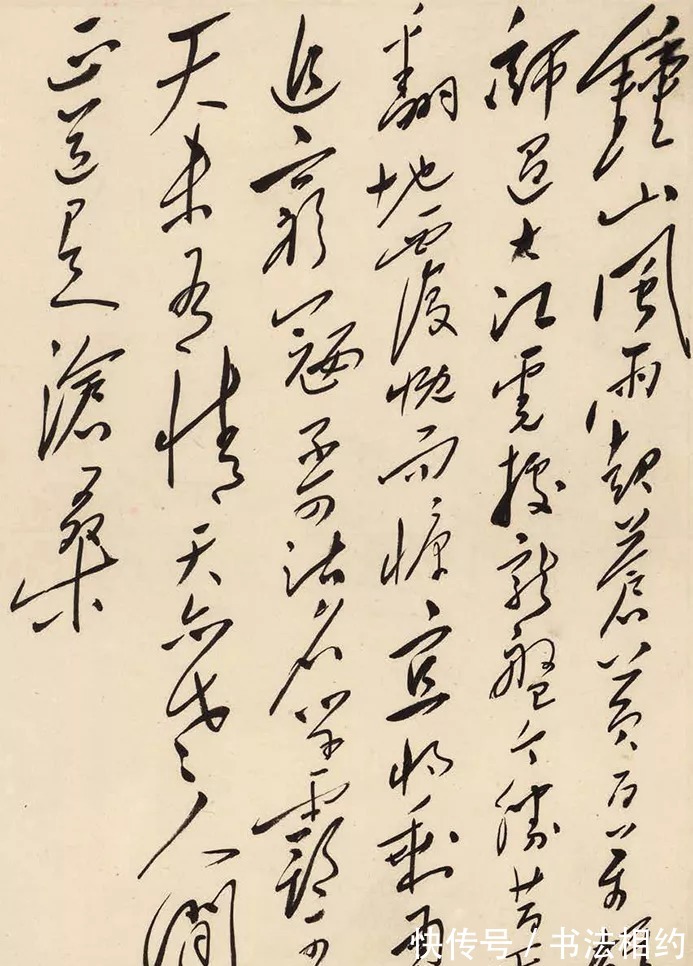 鍾山風雨起蒼黄百萬雄
師過大江虎據龍盤今勝昔天
翻地覆慨而慷宜將剩勇
追窮寇不可沽名學霸王
天若有情天亦老人間
正道是滄桑
快传号/书法相约